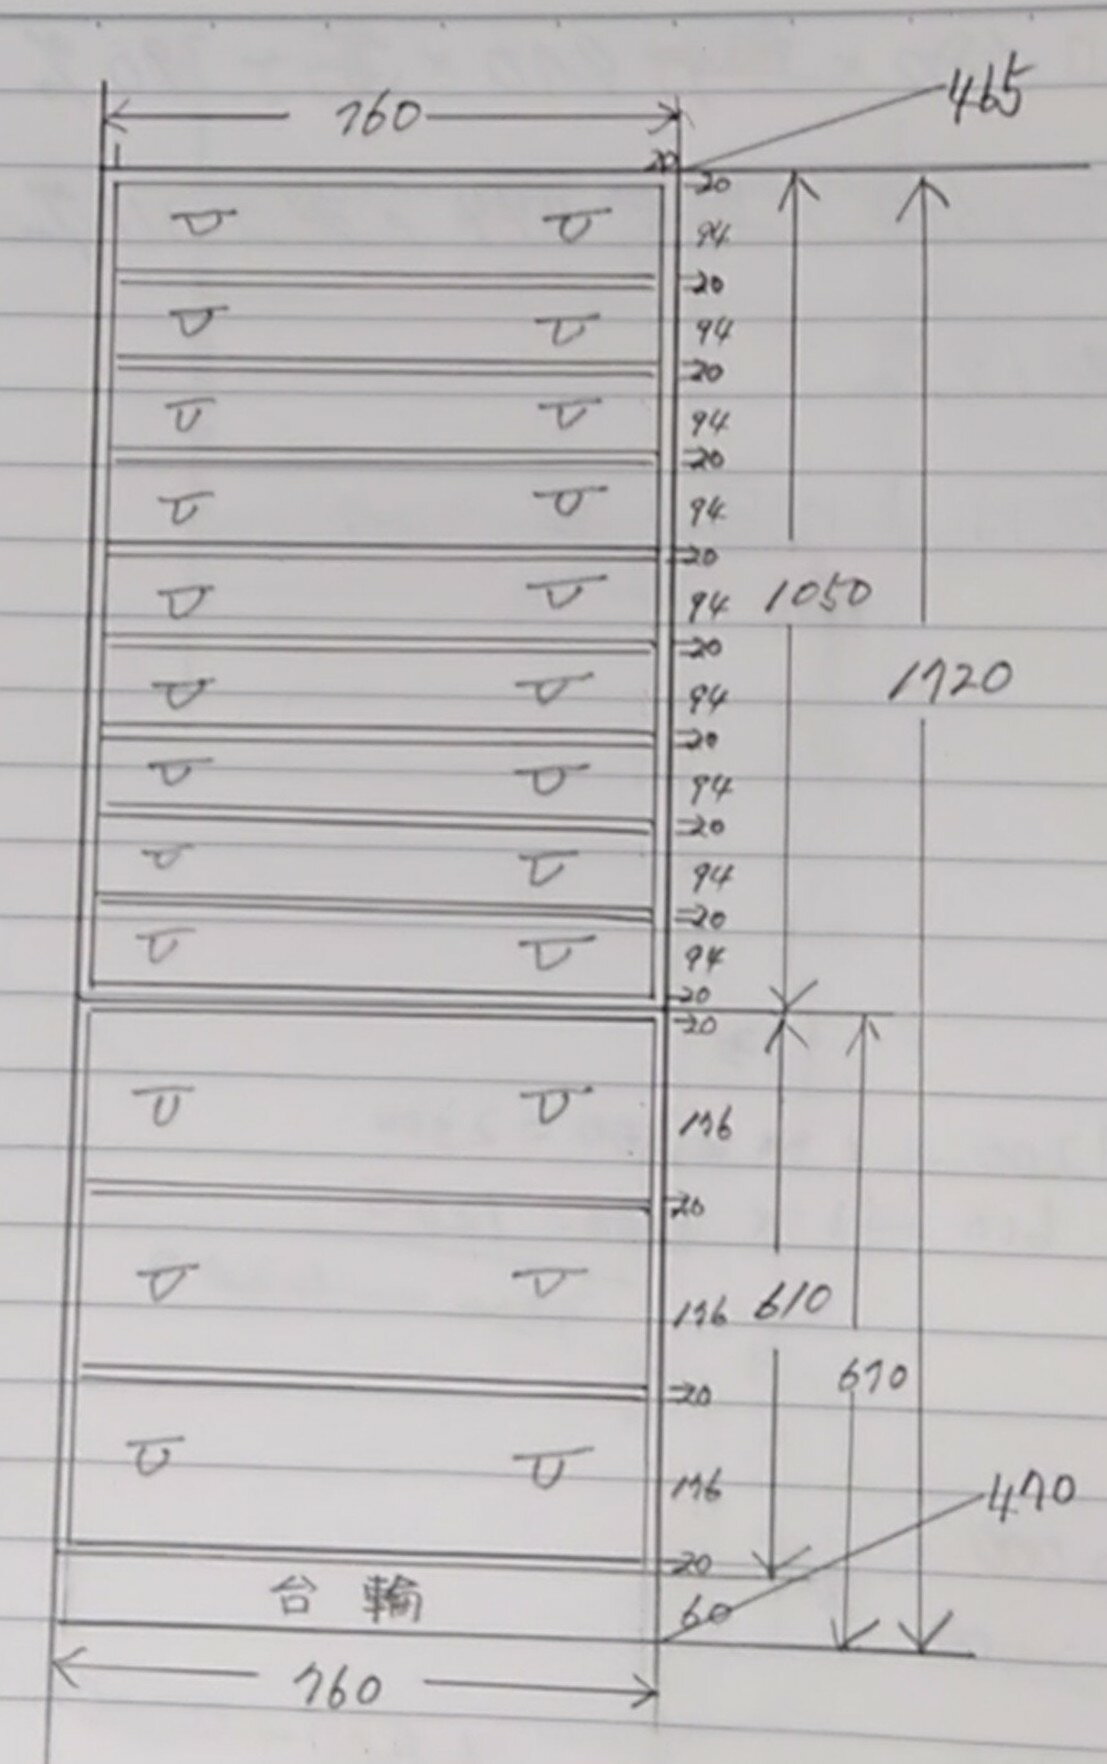 760
465
20
20
94
20
94
20
94
20
94
20
94
1050
20
94
1720
20
94
20
94
20
94
20
20
176
20
176
610
20
670
176
470
20
台輪
60
760